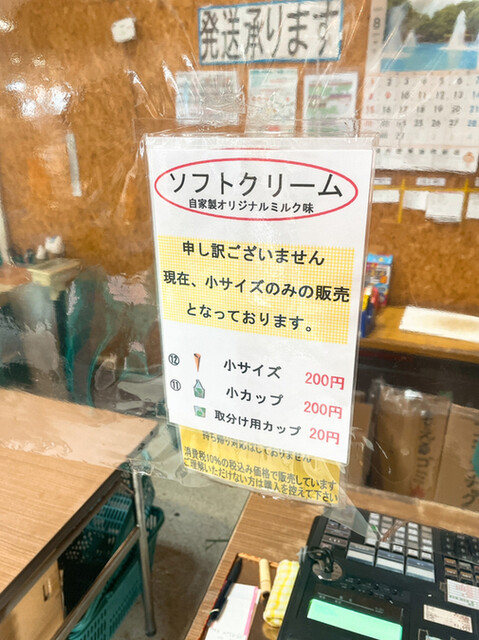 発送承ります
8
ソフトクリーム
自家製オリジナルミルク味
申し訳ございません
現在、小サイズのみの販売
となっております。
⑫ 小サイズ 200円
⑪ 小カップ 200円
取分け用カップ 20円
持ち帰り対応はしておりません
消費税10%の税込み価格で販売しています
ご理解いただけない方は購入を控えて下さい